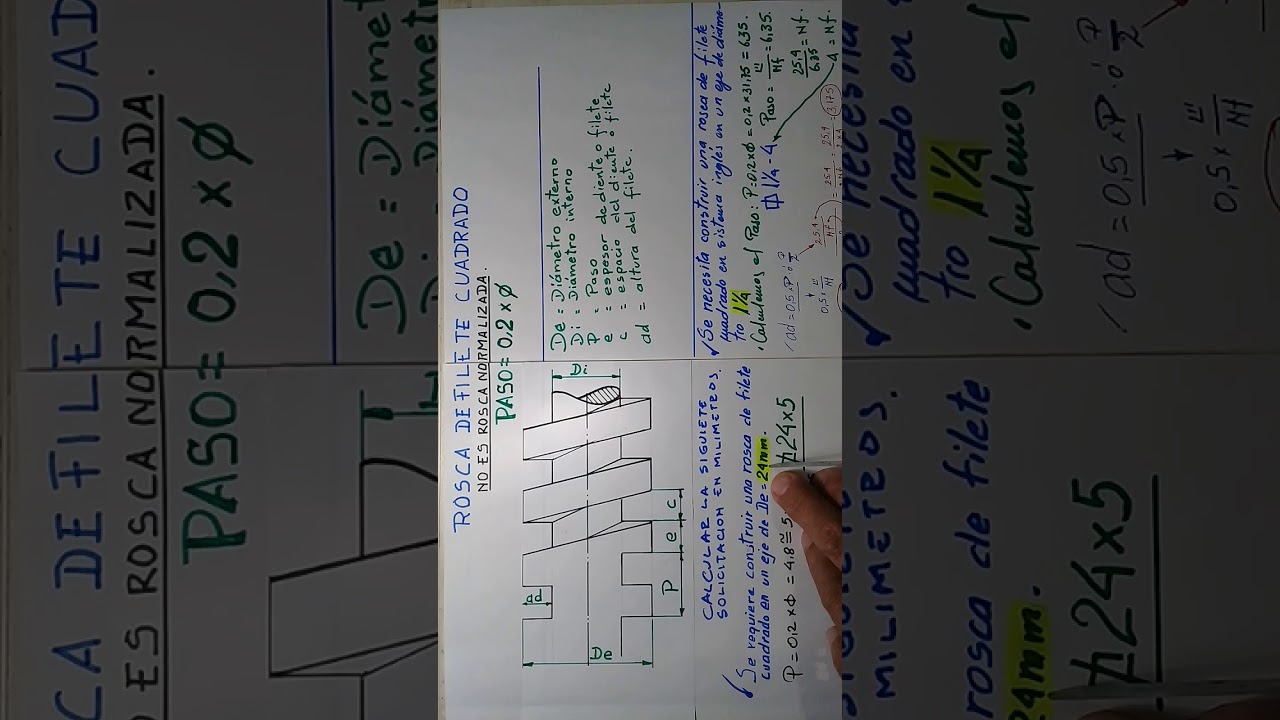 ROSCA DE FILETE CUADRADO
NO ES ROSCA NORMALIZADA.
PASO = 0,2 x Ø
De = Diámetro externo
Di = Diámetro interno
P = Paso
e = espesor de diente o filete
c = espacio del diente o filete
ad = altura del filete.
Di
ad
De
P
e
c
CALCULAR LA SIGUIETE
SOLICITACION EN MILIMETROS.
✓ Se requiere construir una rosca de filete
cuadrado en un eje de De = 24mm.
P = 0,2 x Φ = 4.8 ≅ 5
24x5
✓ Se necesita construir una rosca de filete
cuadrado en sistema inglés en un eje de diáme-
tro 1 1/4
• Calculemos el Paso: P: 0.2 x Φ = 0,2 x 31,75 = 6.35.
1 1/4 - 4
Paso = 1"/Nf = 6.35.
25,4/6.35 = Nf.
4 = Nf.
ad = 0,5 x P ó P/2
0,5 x 1"/Nf
CA DE FILETE CUAD
ES ROSCA NORMALIZADA.
PASO = 0,2 x Ø
De = Diámet
Diámetr
MILIMETROS.
rosca de filete
24mm.
24x5
✓ Se necesita
cuadrado en
tro 1 1/4
• Calculemos el
ad = 0,5 x P ó P/2
0,5 x 1"/Nf